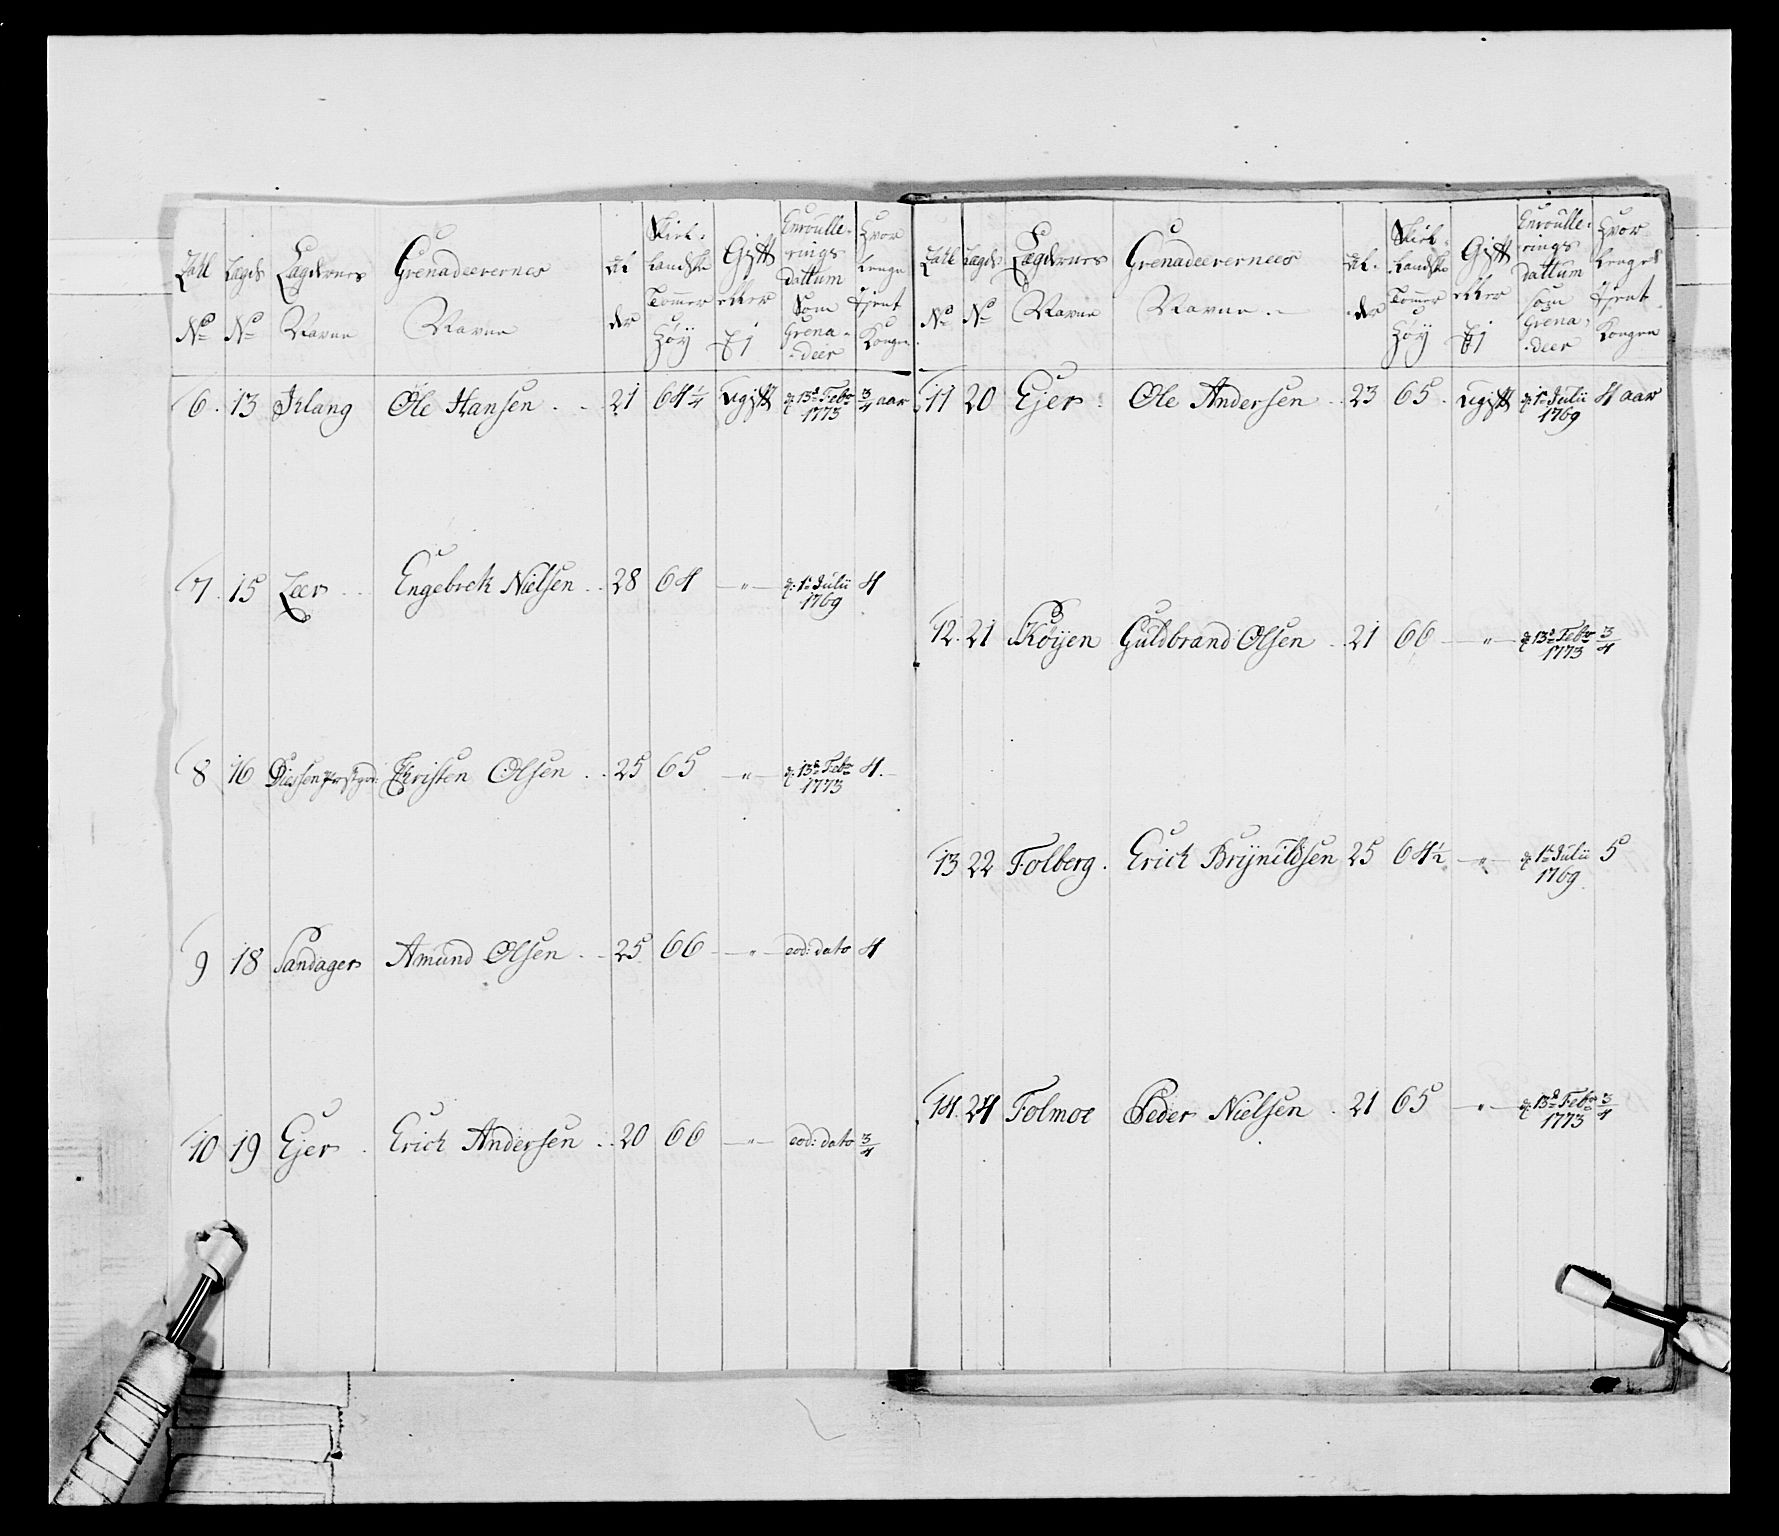 Tall No Lægds No Lægdernes Navne Grenadeerernes Navne Al der Siel- landske Tommer Høy Gift eller Ej Enroulle- rings dattum Som Grena- deer Hvor lenge Tjent Kongen
6. 13 Klang Ole Hansen 21 64 1/4 Ugift d: 13de Febr 1773 3/4 aar
7. 15 Leer Engebrek Nielsen 28 64 -"- d: 1te Julii 1769 4
8 16 Christen Olsen 25 65 -"- d: 13de Febr 1773 4
9 18 Sandager Amund Olsen 25 66 -"- eod: dato 4
10 19 Ejer Erich Andersen 20 66 -"- eod: dato 3/4
Tall No Lægds No Lægdernes Navne Grenadeerernes Navne Al- der Siel- landske Tommer Høy Gift eller Ej Enroulle- rings dattum som Grena- deer Hvor lenge Tjent Kongen
11 20 Ejer Ole Andersen 23 65 Ugift d: 1te Julii 1769 4 aar
12. 21 Køyen Guldbrand Olsen 21 66 -"- d: 13de Febr 1773 3/4
13 22 Folberg Erich Brynildsen 25 64 1/2 -"- d: 1te Julii 1769 5
14. 24 Folmoe Peder Nielsen 21 65 -"- d: 13de Febr 1773 3/4